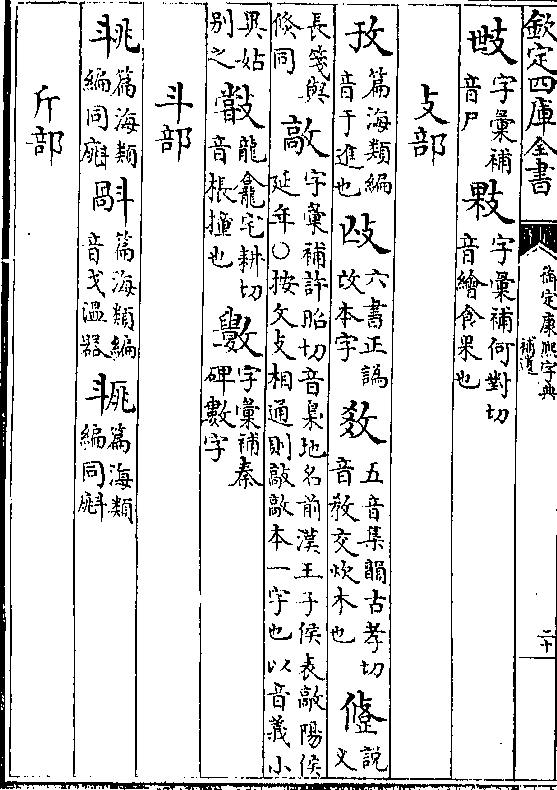 欽定四庫全書
御定康熙字典
補遺
二十
字彙補音尸
字彙補何對切音繪食果也
攴部
攷 篇海類編音于進也
六書正譌改本字
敎 五音集韻古孝切音教交炊木也
說文
長箋與修同
敲 字彙補許昭切音梟地名前漢王子侯表敲陽侯延年○按文攴相通則敲敲本一字也以音義小異姑別之
龍龕宅耕切音棖撞也
字彙補秦碑數字
斗部
篇海類編同㪷
篇海類編音戈溫器
篇海類編同
斤部